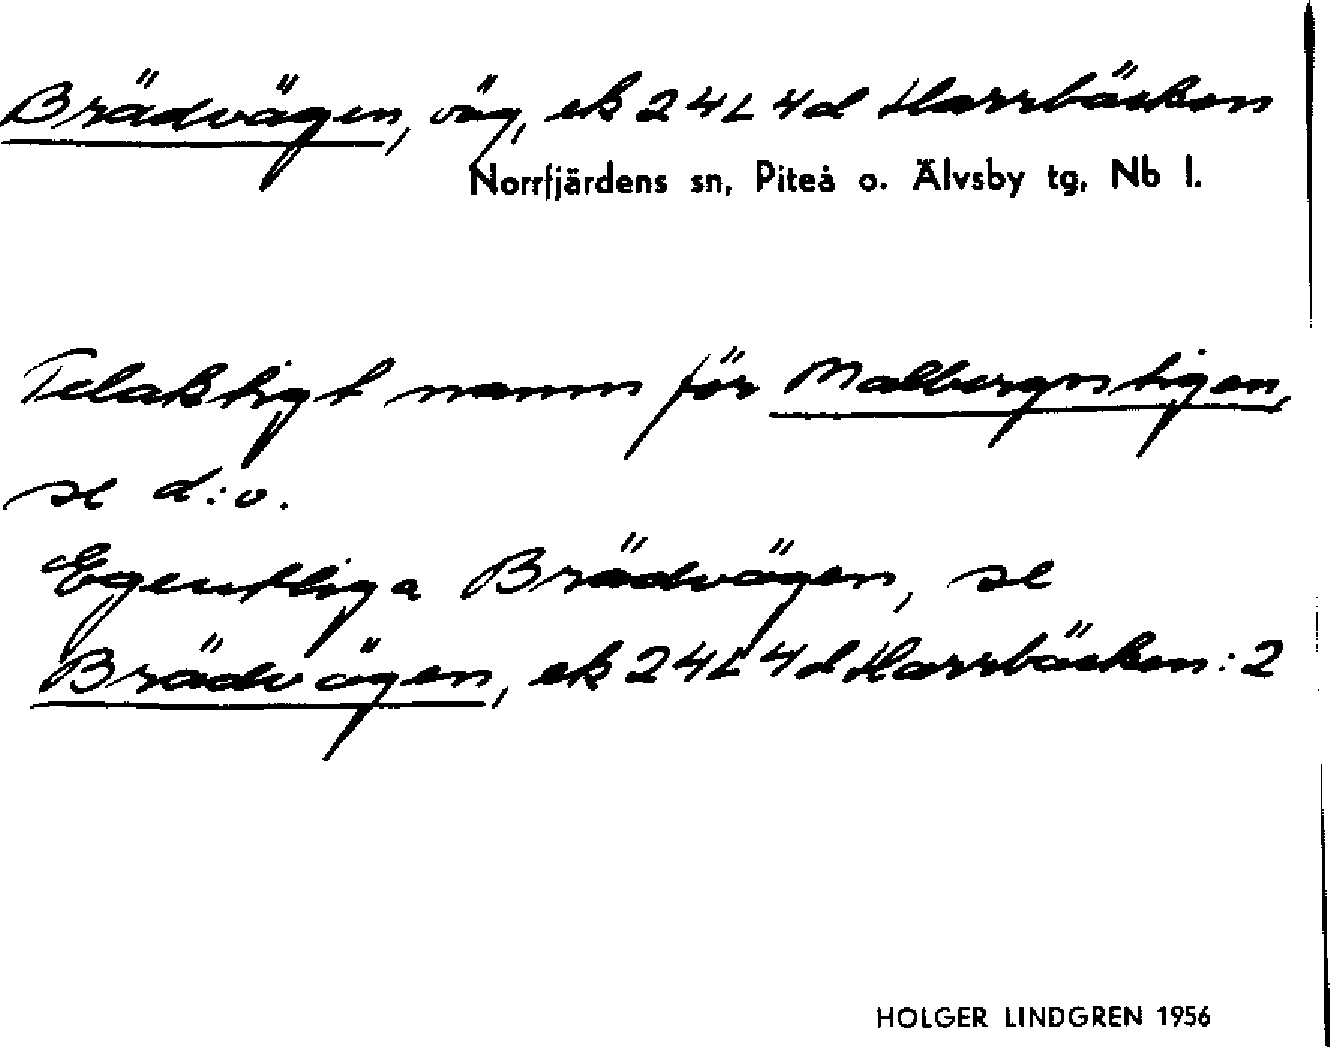 Brädvägen, väg, ek 24L 4d Harrbäcken
Norrfjärdens sn, Piteå o. Älvsby tg, Nb l.
Felaktigt namn för Malbergsstigen,
se d:o.
Egentliga Brädvägen, se
Brädvägen, ek 24L 4d Harrbäcken:2
HOLGER LINDGREN 1956